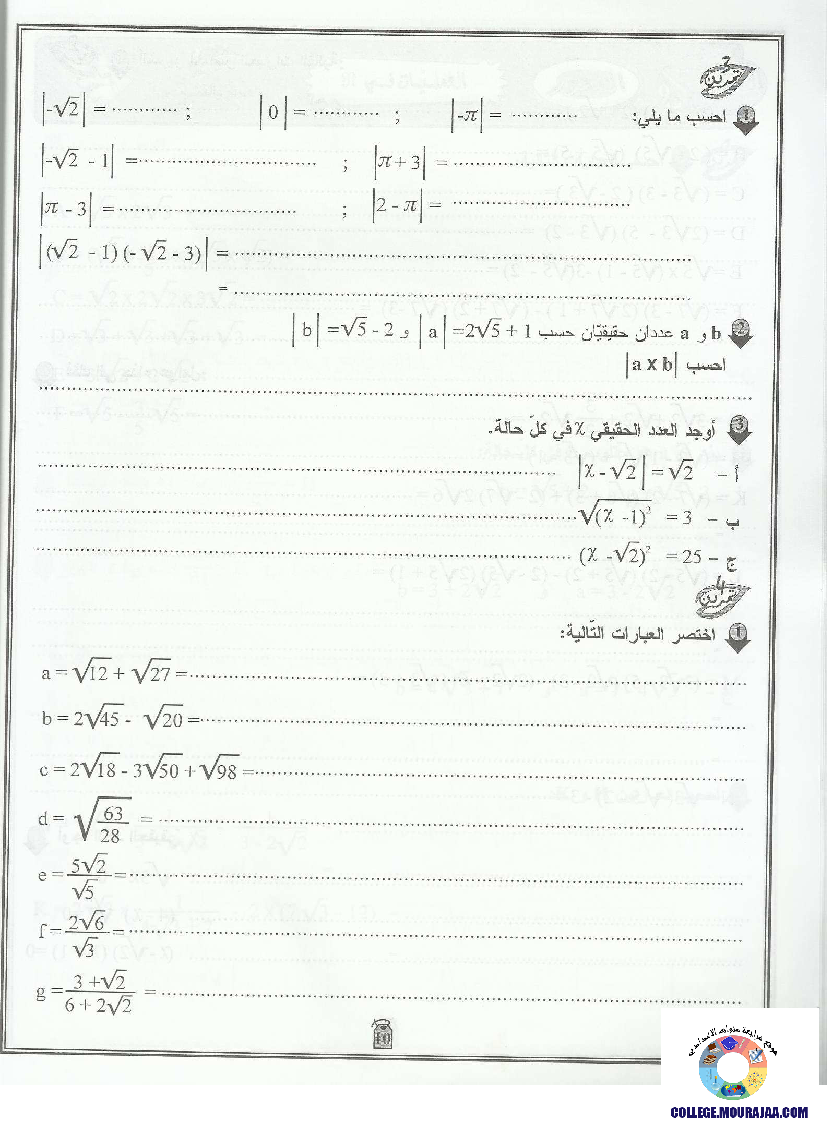 تمرين 3
1 احسب ما يلي: |-π| = ............ ; |0| = ............ ; |-√2| = ............ ;
|-√2 - 1| = ................................ ; |π + 3| = ................................
|π - 3| = ................................ ; |2 - π| = ................................
|(√2 - 1)(-√2 - 3)| = ................................................................
= ................................................................
2 b و a عددان حقيقيّان حسب |a| = 2√5 + 1 و |b| = √5 - 2
احسب |a x b|
................................................................
3 أوجد العدد الحقيقي x في كلّ حالة.
أ - |x - √2| = √2 ................................................................
ب - √(x - 1)² = 3 ................................................................
ج - (x - √2)² = 25 ................................................................
تمرين 4
1 اختصر العبارات التّالية:
a = √12 + √27 = ................................................................
b = 2√45 - √20 = ................................................................
c = 2√18 - 3√50 + √98 = ................................................................
d = √(63/28) = ................................................................
e = 5√2/√5 = ................................................................
f = 2√6/√3 = ................................................................
g = (3 + √2)/(6 + 2√2) = ................................................................
10
موقع مراجعة
COLLEGE.MOURAJAA.COM